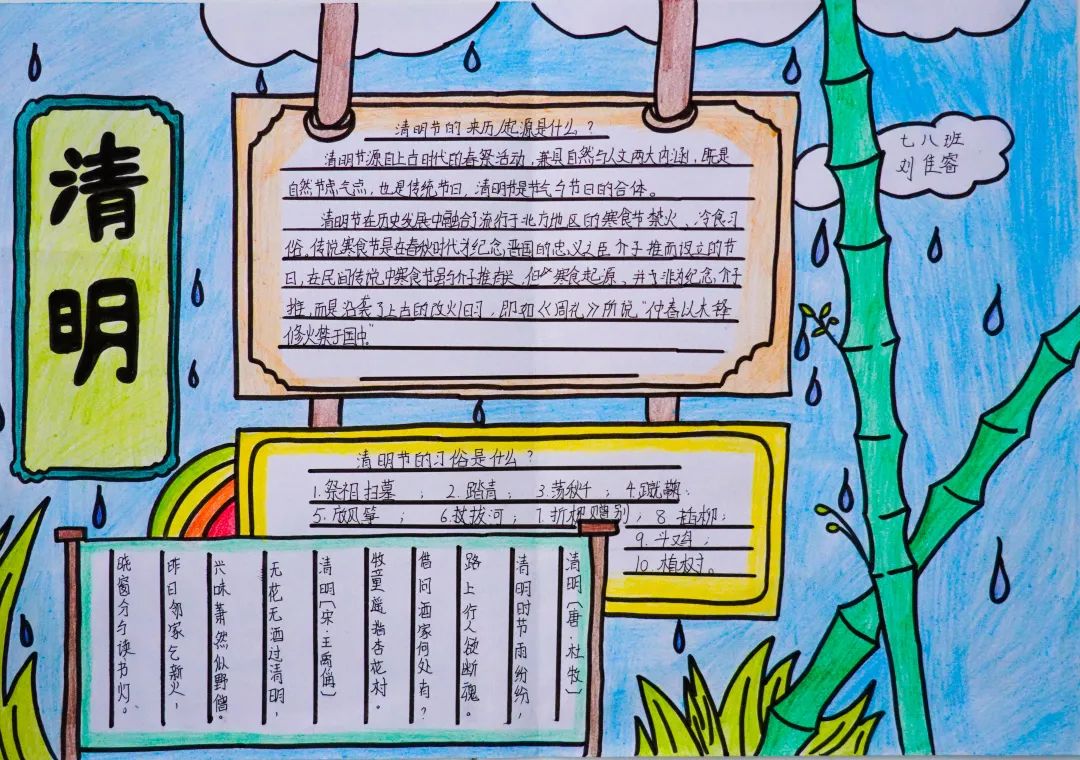 清明
七八班
刘佳睿
清明节的来历/起源是什么？
清明节源自上古时代的春祭活动，兼具自然与人文两大内涵，既是
自然节气点，也是传统节日，清明节是节气与节日的合体。
清明节在历史发展中融合了流行于北方地区的寒食节禁火、冷食习
俗。传说寒食节是在春秋时代为纪念晋国的忠义之臣介子推而设立的节
日，在民间传说中寒食节虽与介子推有关，但"寒食起源，并非为纪念介子
推，而是沿袭了上古的改火旧习，即如《周礼》所说"仲春以木铎
修火禁于国中"
清明节的习俗是什么？
1.祭祖扫墓； 2.踏青； 3.荡秋千； 4.蹴鞠；
5.放风筝； 6.拔河； 7.折柳赠别； 8.插柳；
9.斗鸡；
10.植树。
清明〔唐·杜牧〕
清明时节雨纷纷，
路上行人欲断魂。
借问酒家何处有？
牧童遥指杏花村。
清明〔宋·王禹偁〕
无花无酒过清明，
兴味萧然似野僧。
昨日邻家乞新火，
晓窗分与读书灯。